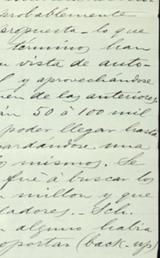 probablemente
propuesta - lo que
términos han
vista de auto-
l y aprovechándose
en de las anteriores
án 50 á 100 mil
poder llegar hasta
ardándose una
los mismos. Se
fué á buscar los
millon y que
adores.. Sch.
alguno habia
oportar (back up)